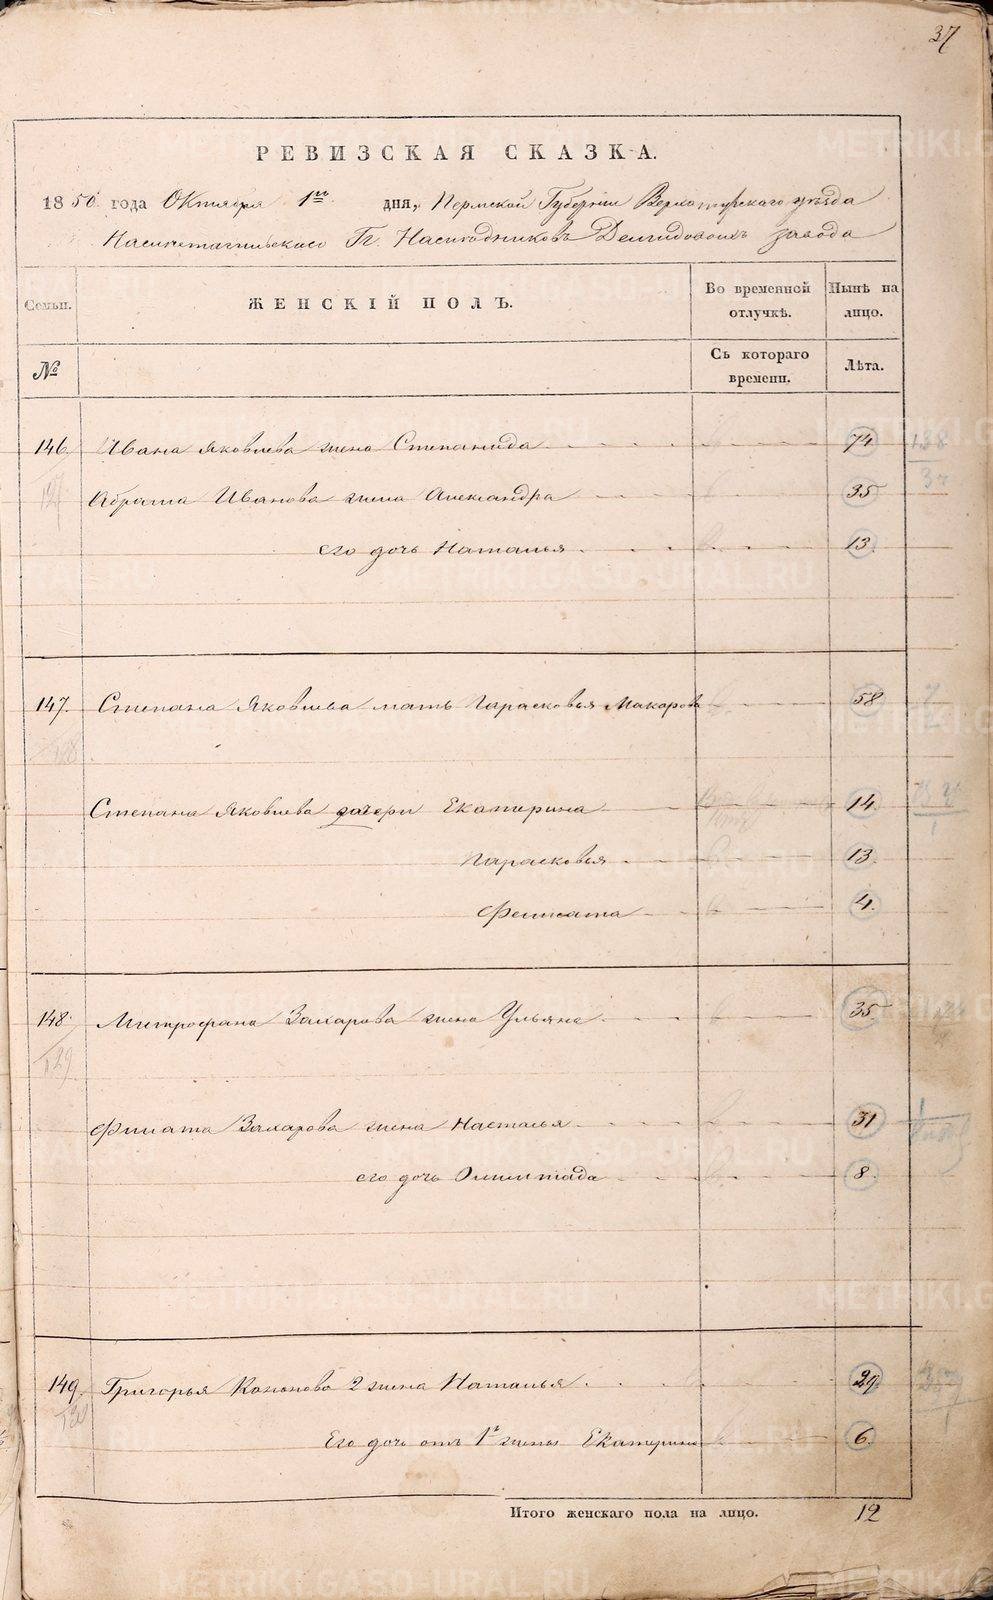 37
РЕВИЗСКАЯ СКАЗКА.
1850 года Октября 1го дня, Пермской Губернии Верхотурскаго уѣзда
Нижнетагильскаго Гг. Наслѣдниковъ Демидовыхъ завода
Семьи. ЖЕНСКІЙ ПОЛЪ. Во временной отлучкѣ. Нынѣ на лицо.
№ Съ котораго времени. Лѣта.
146. Ивана Яковлева жена Степанида 74 138
Абрама Иванова жена Александра 35
его дочь Наталья 13.
147. Степана Яковлева мать Парасковья Макарова 58
128
Степана Яковлева дочери Екатерина 14
Парасковья 13.
Фелисата 4.
148. Митрофана Захарова жена Ульяна 35
129
Филата Захарова жена Настасья 31
его дочь Олимпіада 8.
149. Григорья Кононова 2 жена Наталья 29
130
Его дочь отъ 1й жены Екатерина 6.
Итого женскаго пола на лицо. 12
METRIKI.GASO-URAL.RU